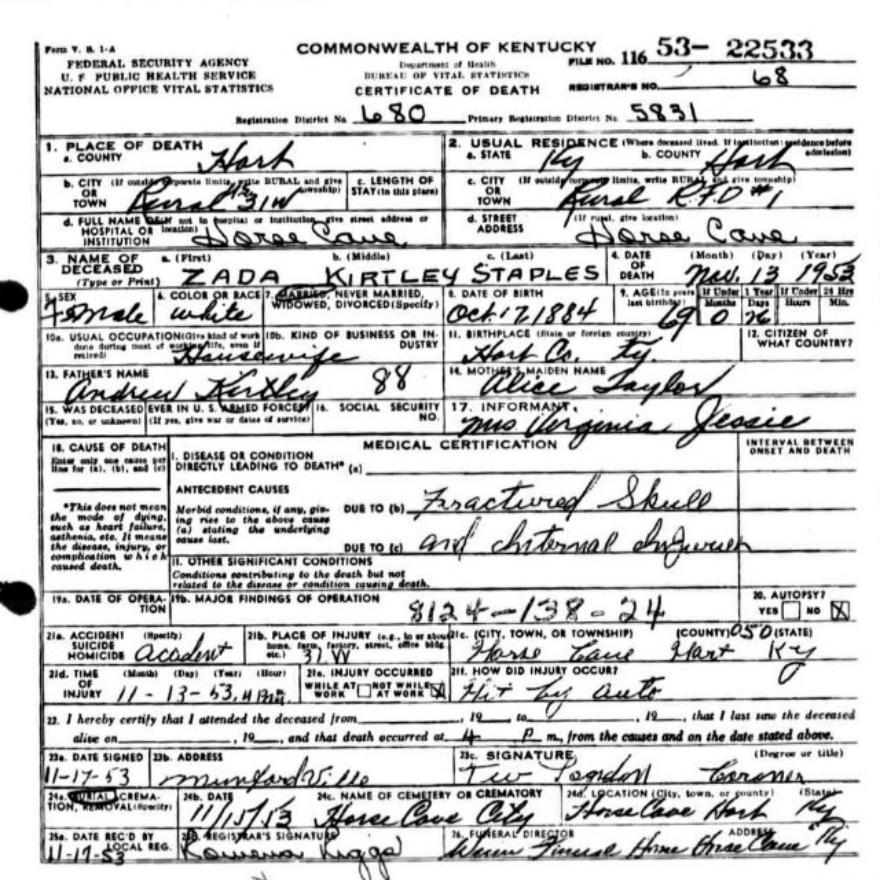 Form V. S. 1-A
COMMONWEALTH OF KENTUCKY
FILE NO. 116 53- 22533
FEDERAL SECURITY AGENCY
Department of Health
U. S. PUBLIC HEALTH SERVICE
BUREAU OF VITAL STATISTICS
REGISTRAR'S NO. 68
NATIONAL OFFICE VITAL STATISTICS
CERTIFICATE OF DEATH
Registration District No. 680 Primary Registration District No. 5831
1. PLACE OF DEATH
a. COUNTY Hart
2. USUAL RESIDENCE (Where deceased lived. If institution: residence before admission)
a. STATE Ky b. COUNTY Hart
b. CITY (If outside corporate limits, write RURAL and give township) OR TOWN Rural 31W
c. LENGTH OF STAY (in this place)
c. CITY (If outside corporate limits, write RURAL and give township) OR TOWN Rural RFD #1
d. FULL NAME OF (If not in hospital or institution, give street address or location) HOSPITAL OR INSTITUTION Horse Cave
d. STREET ADDRESS (If rural, give location) Horse Cave
3. NAME OF DECEASED (Type or Print)
a. (First) b. (Middle) c. (Last)
ZADA KIRTLEY STAPLES
4. DATE OF DEATH (Month) (Day) (Year)
Nov. 13 1953
5. SEX Female
6. COLOR OR RACE white
7. MARRIED, NEVER MARRIED, WIDOWED, DIVORCED (Specify)
8. DATE OF BIRTH Oct. 17, 1884
9. AGE (In years last birthday) 69
If Under 1 Year Months 0 Days 26
If Under 24 Hrs Hours Min.
10a. USUAL OCCUPATION (Give kind of work done during most of working life, even if retired) Housewife
10b. KIND OF BUSINESS OR INDUSTRY
11. BIRTHPLACE (State or foreign country) Hart Co. Ky.
12. CITIZEN OF WHAT COUNTRY?
13. FATHER'S NAME Andrew Kirtley 88
14. MOTHER'S MAIDEN NAME Alice Taylor
15. WAS DECEASED EVER IN U. S. ARMED FORCES? (Yes, no, or unknown) (If yes, give war or dates of service)
16. SOCIAL SECURITY NO.
17. INFORMANT Mrs Virginia Jessie
18. CAUSE OF DEATH
Enter only one cause per line for (a), (b), and (c)
MEDICAL CERTIFICATION
INTERVAL BETWEEN ONSET AND DEATH
I. DISEASE OR CONDITION DIRECTLY LEADING TO DEATH* (a)
*This does not mean the mode of dying, such as heart failure, asthenia, etc. It means the disease, injury, or complication which caused death.
ANTECEDENT CAUSES
Morbid conditions, if any, giving rise to the above cause (a) stating the underlying cause last.
DUE TO (b) Fractured Skull
DUE TO (c) and Internal Injuries
II. OTHER SIGNIFICANT CONDITIONS
Conditions contributing to the death but not related to the disease or condition causing death.
19a. DATE OF OPERATION
19b. MAJOR FINDINGS OF OPERATION
8124-138-24
20. AUTOPSY? YES NO X
21a. ACCIDENT SUICIDE HOMICIDE (Specify) Acadent
21b. PLACE OF INJURY (e.g., in or about home, farm, factory, street, office bldg. etc.) 31 W
21c. (CITY, TOWN, OR TOWNSHIP) (COUNTY) 050 (STATE)
Horse Cave Hart Ky
21d. TIME OF INJURY (Month) (Day) (Year) (Hour)
11-13-53, 4 Pm.
21e. INJURY OCCURRED WHILE AT WORK NOT WHILE AT WORK X
21f. HOW DID INJURY OCCUR? Hit by auto
22. I hereby certify that I attended the deceased from , 19 to , 19 , that I last saw the deceased
alive on , 19 , and that death occurred at 4 P m., from the causes and on the date stated above.
23a. DATE SIGNED 11-17-53
23b. ADDRESS Munfordville
23c. SIGNATURE (Degree or title) Coroner
24a. BURIAL, CREMATION, REMOVAL (Specify)
24b. DATE 11/15/53
24c. NAME OF CEMETERY OR CREMATORY Horse Cave City
24d. LOCATION (City, town, or county) (State) Horse Cave Hart Ky
25a. DATE REC'D BY LOCAL REG. 11-17-53
25b. REGISTRAR'S SIGNATURE Rowena Riggs
26. FUNERAL DIRECTOR ADDRESS
Winn Funeral Home Horse Cave Ky